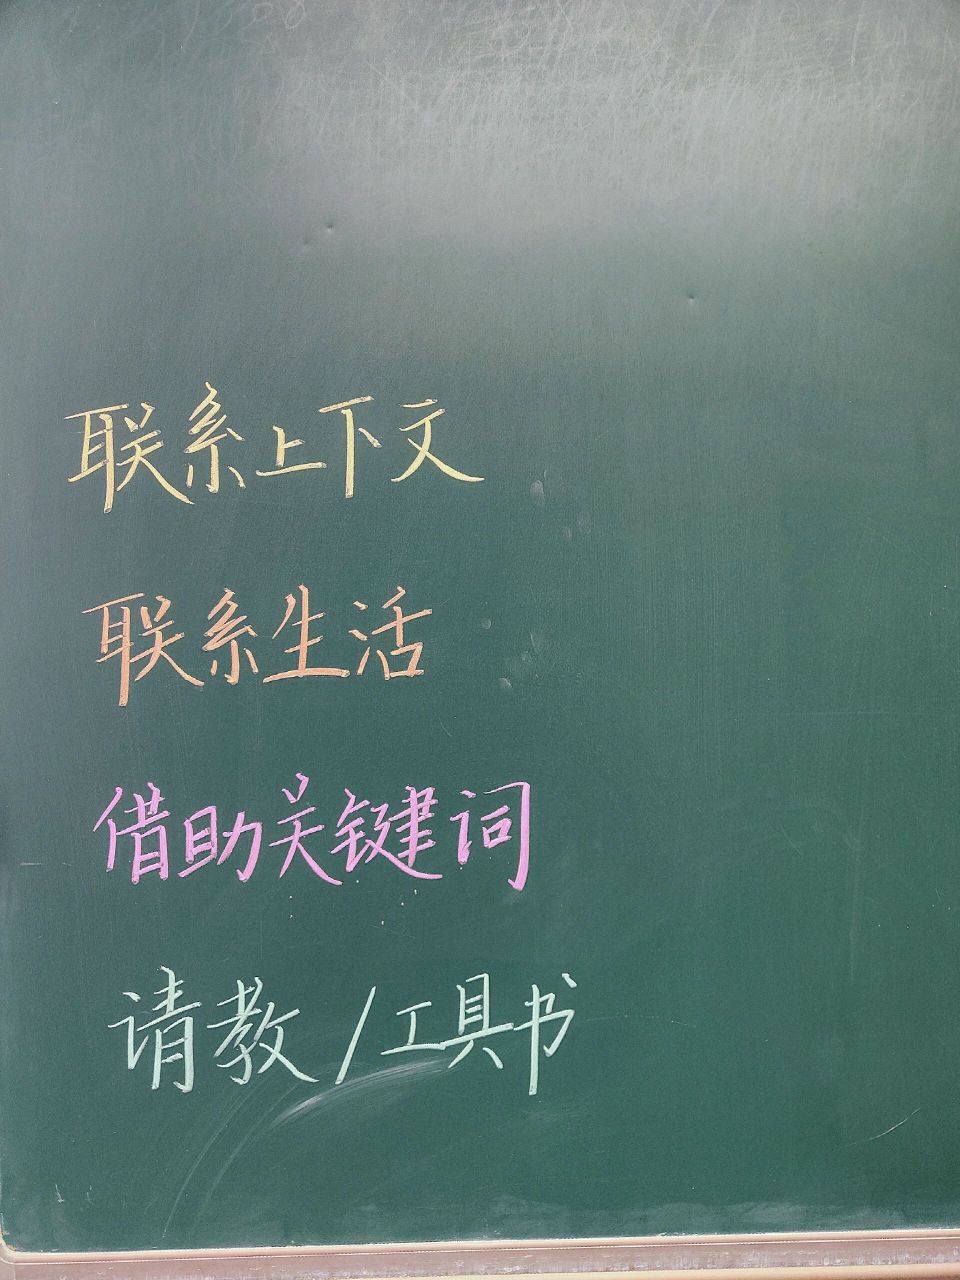 联系上下文
联系生活
借助关键词
请教/工具书